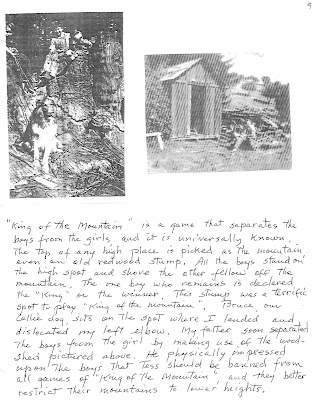 9
"King of the Mountain" is a game that separates the
boys from the girls, and it is universally known.
The top of any high place is picked as the mountain
even an old redwood stump. All the boys stand on
the high spot and shove the other fellow off the
mountain. The one boy who remains is declared
the "King" or the winner. This stump was a terrific
spot to play "King of the mountain". Bruce our
Collie dog, sits on the spot where I landed and
dislocated my left elbow. My father soon separated
the boys from the girl by making use of the wood-
shed pictured above. He physically impressed
upon the boys that Tess should be banned from
all games of "King of the Mountain", and they better
restrict their mountains to lower heights.